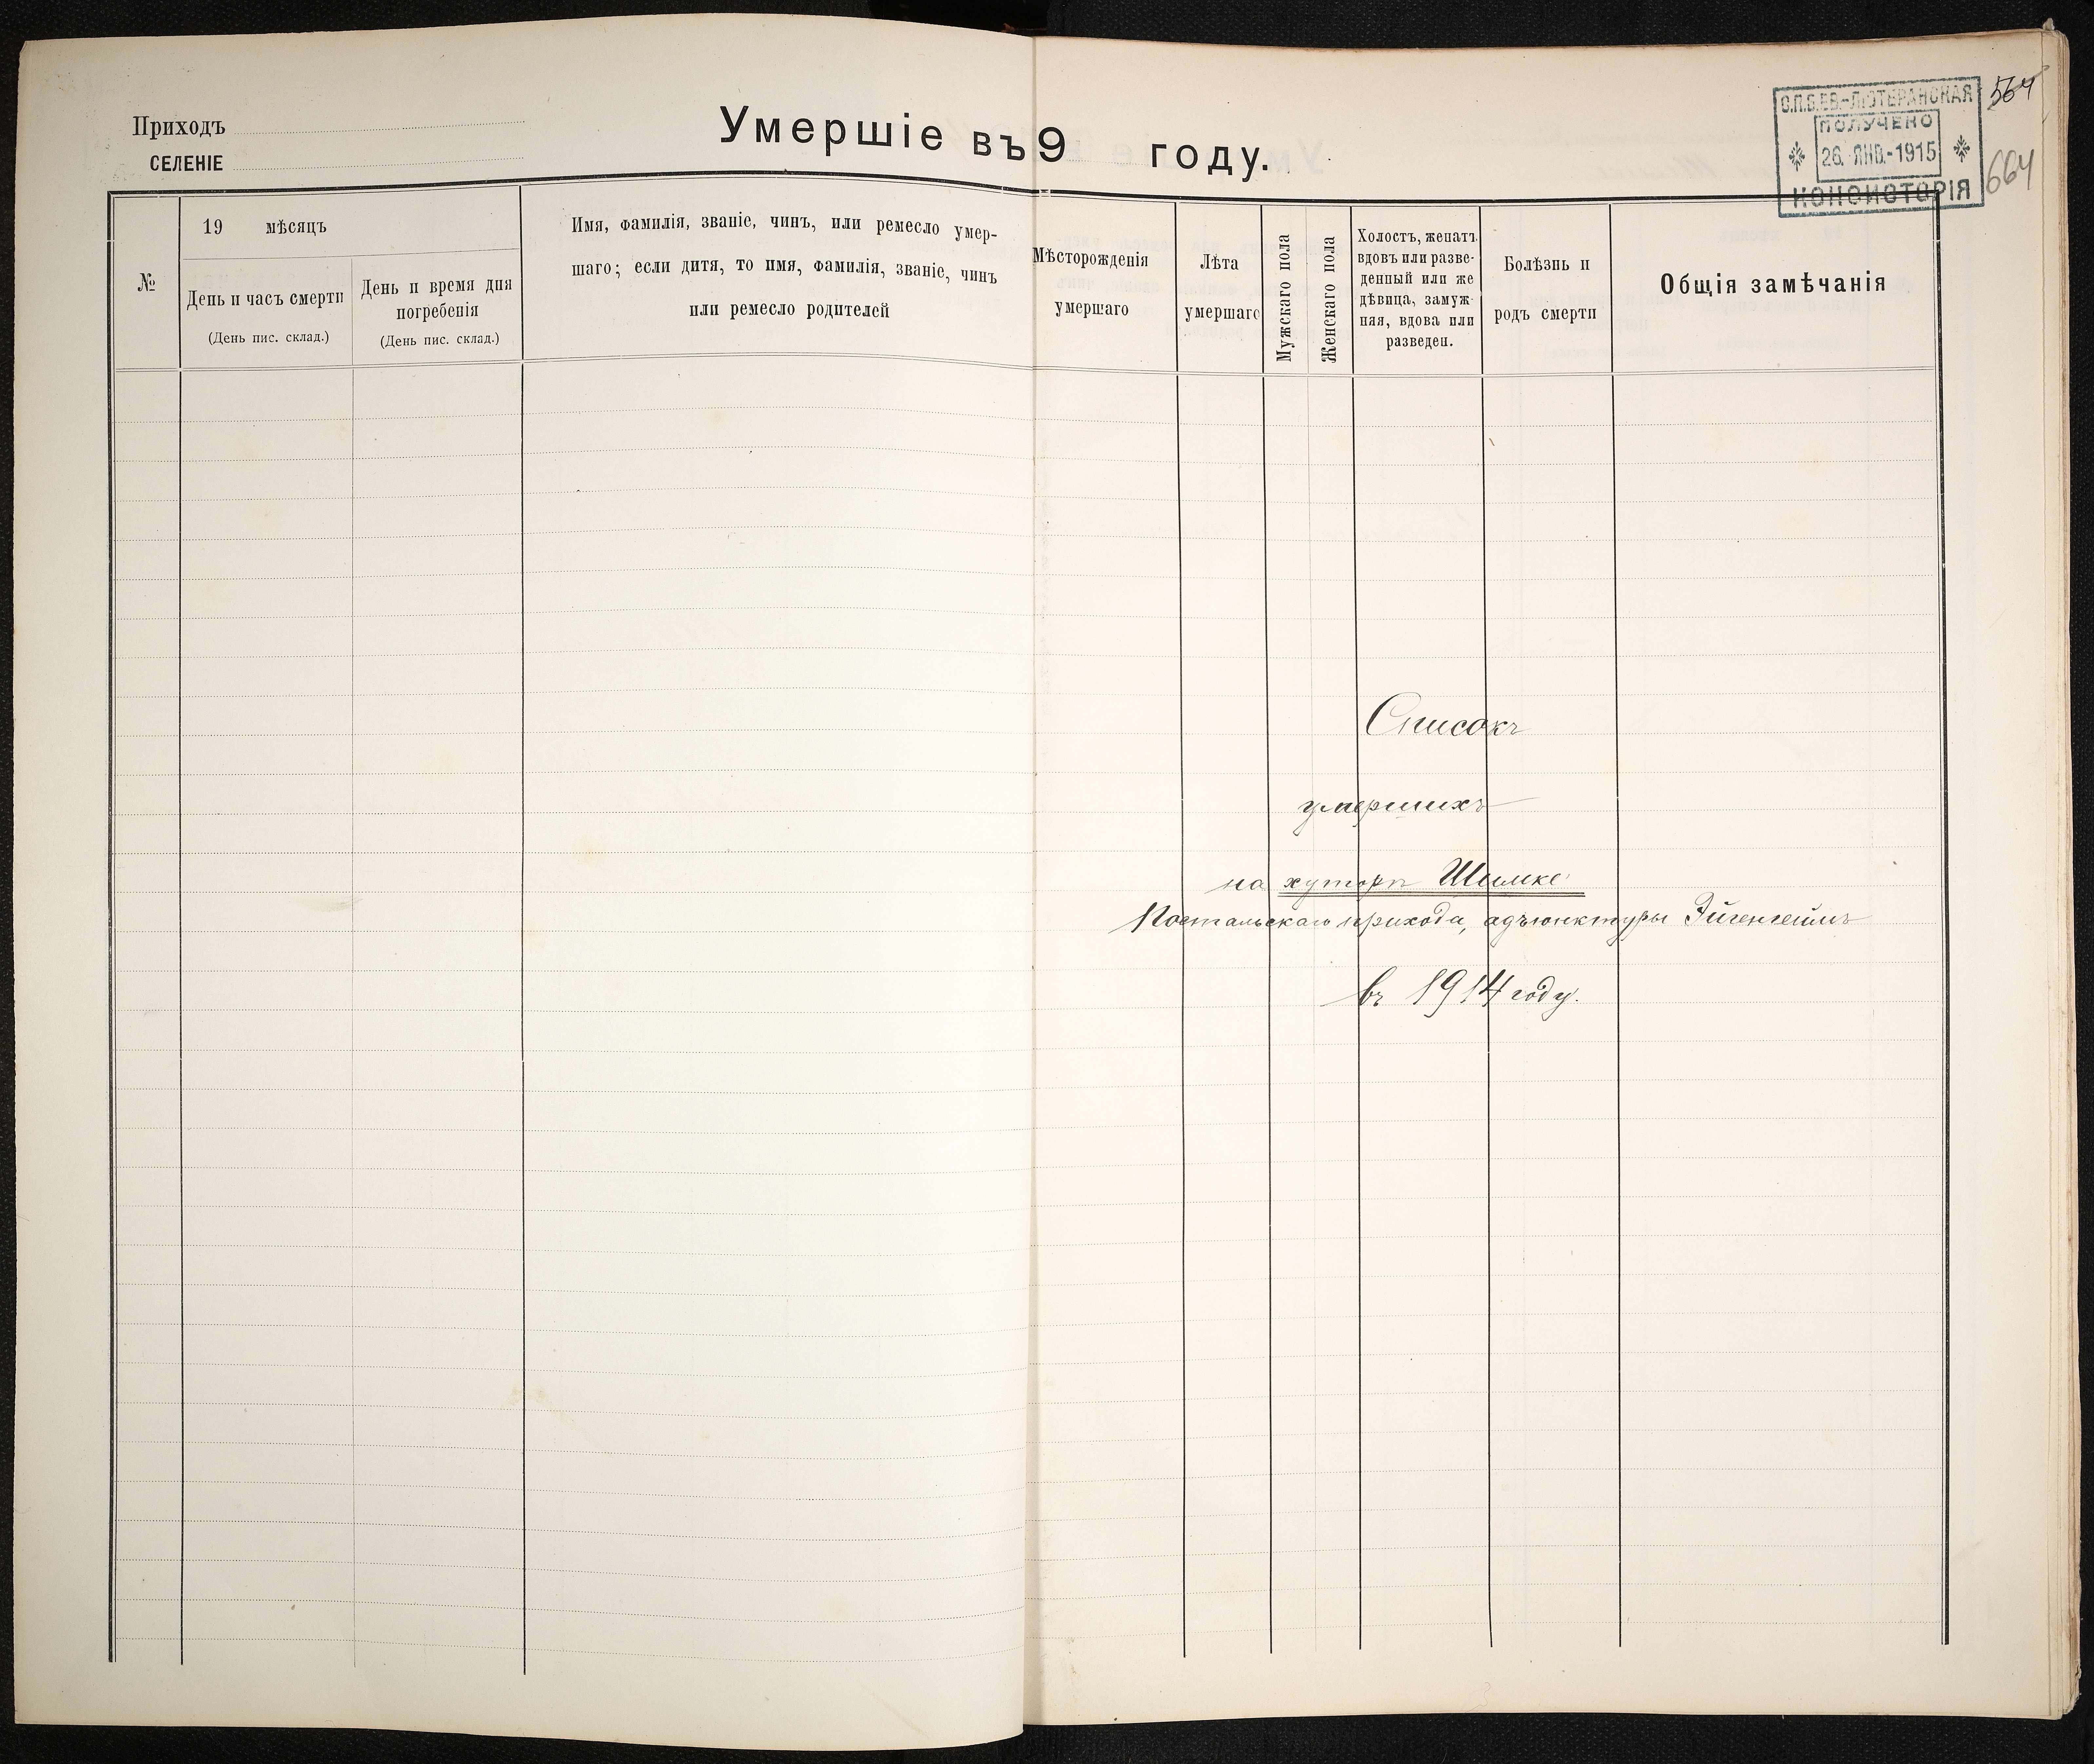 Приходъ
СЕЛЕНІЕ
Умершіе въ 9 году.
С.П.Б.ЕВ.-ЛЮТЕРАНСКАЯ
ПОЛУЧЕНО
26. ЯНВ.-1915
КОНСИСТОРІЯ
564
664
№
19 мѣсяцъ
День и часъ смерти
(День пис. склад.)
День и время дня
погребенія
(День пис. склад.)
Имя, фамилія, званіе, чинъ, или ремесло умер-
шаго; если дитя, то имя, фамилія, званіе, чинъ
или ремесло родителей
Мѣсторожденія
умершаго
Лѣта
умершаго
Мужскаго пола
Женскаго пола
Холостъ, женатъ
вдовъ или разве-
денный или же
дѣвица, замуж-
няя, вдова или
разведен.
Болѣзнь и
родъ смерти
Общія замѣчанія
Списокъ
умершихъ
на хуторѣ Шимке
Постальскаго прихода, адъюнктуры Эйгенгеймъ
въ 1914 году.